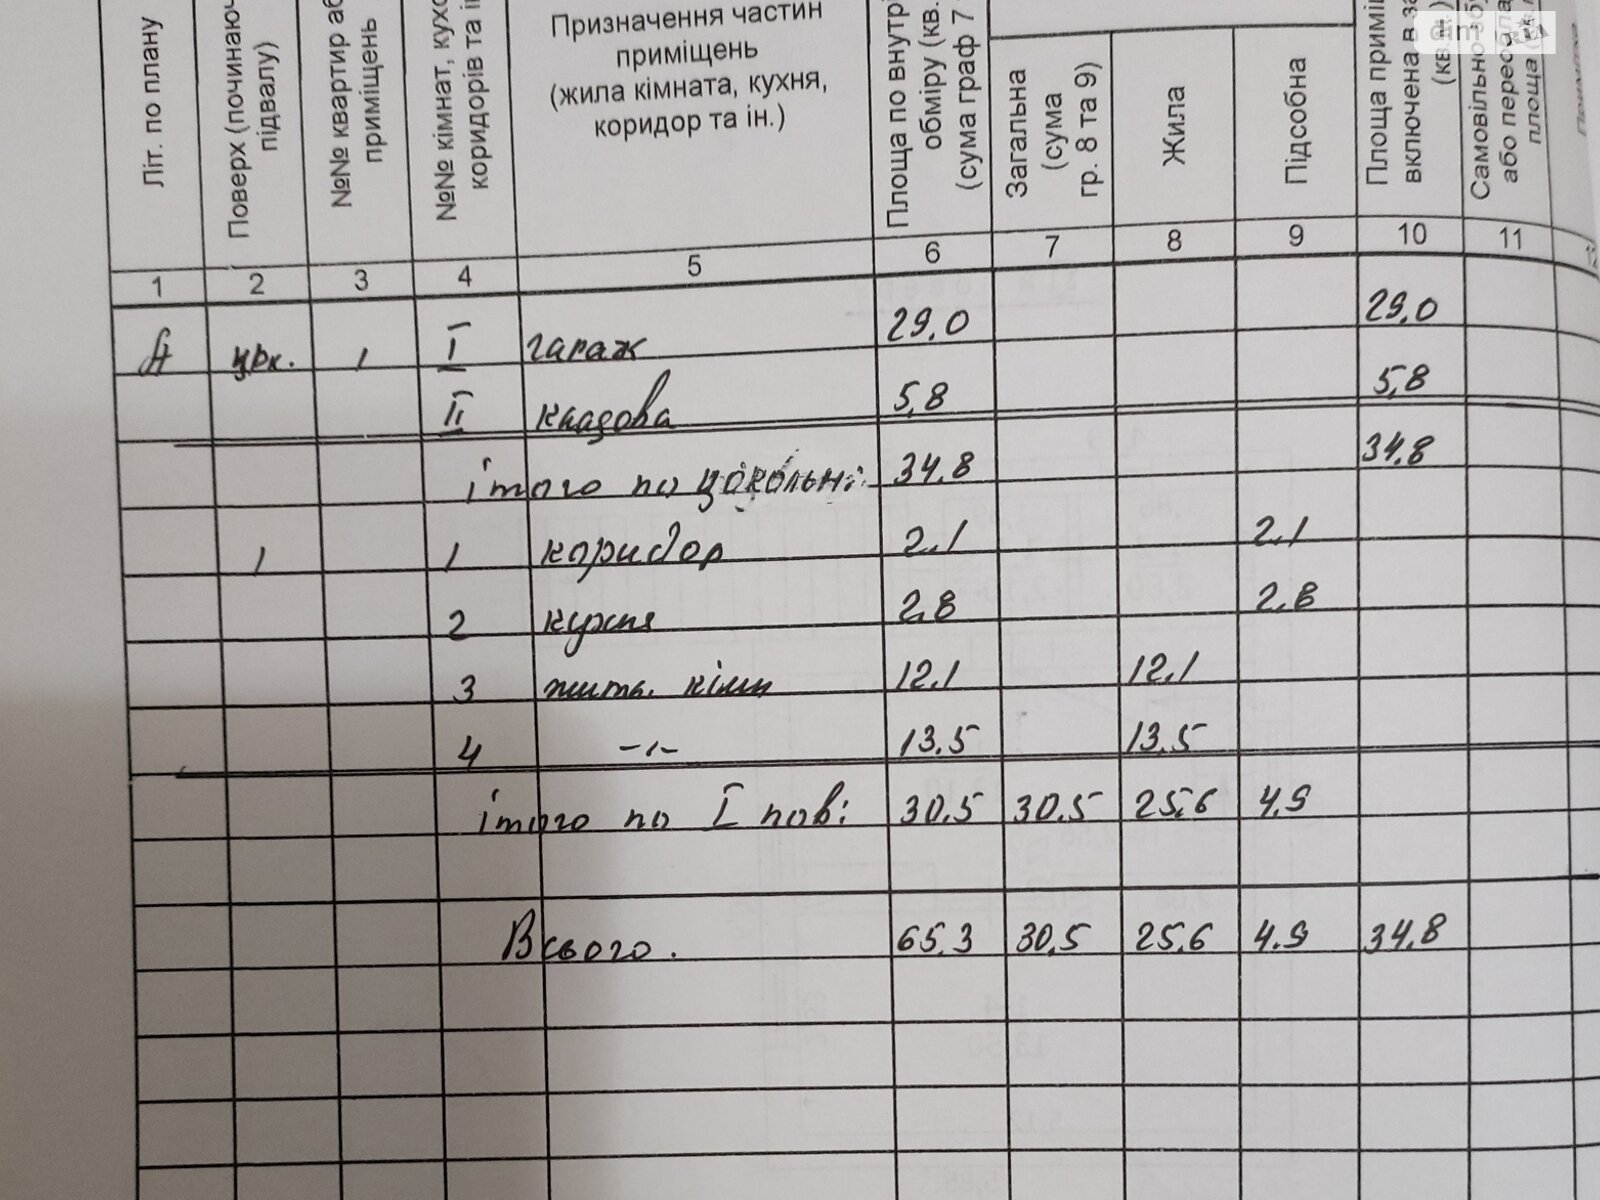 Літ. по плану
Поверх (починаюч
підвалу)
№№ квартир аб
приміщень
№№ кімнат, кухо
коридорів та і
Призначення частин
приміщень
(жила кімната, кухня,
коридор та ін.)
Площа по внутрі
обміру (кв.
(сума граф 7
Загальна
(сума
гр. 8 та 9)
Жила
Підсобна
Площа приміщ
включена в за
(кв.м.)
Самовільно збу
або переобла
площа
1 2 3 4 5 6 7 8 9 10 11 12
А цок. 1 I гараж 29,0 29,0
II кладова 5,8 5,8
італо по цокольн: 34.8 34.8
1 1 коридор 2.1 2.1
2 кухня 2.8 2.8
3 житл. кімн 12.1 12.1
4 -"- 13.5 13.5
ітого по I пов: 30.5 30.5 25.6 4.9
Всього. 65.3 30.5 25.6 4.9 34.8